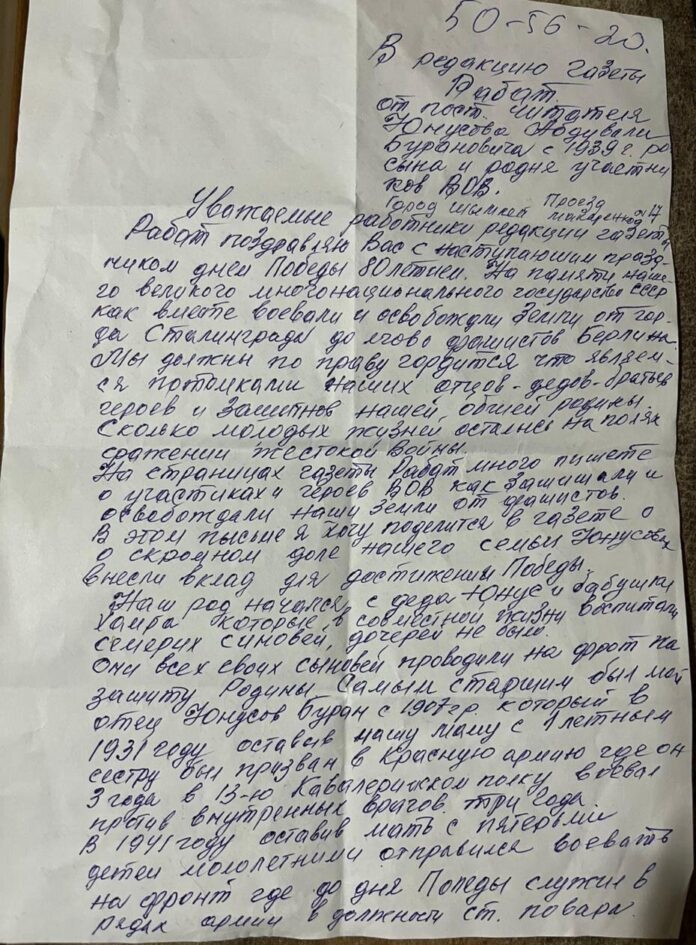 50-56-20.
В редакцию газеты
Рабат.
от пост. читателя
Юнусова Абдували
Бурановича с 1939 г. ро
сына и родня участни
ков ВОВ.
Город Шымкент Проезд
№17
Уважаемые работники редакции газеты
Рабат поздравляю Вас с наступающим празд-
ником дней Победы 80 летией. На памяти наше-
го великого многонационального государство СССР
как вместе воевали и освобождали Земли от гор-
да Сталинграда до фашистов Берлина.
Мы должны по праву гордится что являем-
ся потомками наших отцов-дедов-братьев
героев и защитнов нашей, общей родины.
Сколько молодых жизней остались на полях
сражении жестокой войны.
На страницах газеты Рабат много пишете
о участиках и героев ВОВ как защишали и
освобождали наши Земли от фашистов.
В этом письме я хочу поделится в газете о
о скромном доле нашего семьи Юнусовых
внесли вклад для достижении Победы.
Наш род начался с деда Юнус и бабушки
Хаира которые в совместной жизни воспитали
семерих синовей, дочерей не было.
Они всех своих сыновей проводили на фронт на
зашиту Родины. Самым старшим был мой
отец Юнусов Буран с 1907 гр который в
1931 году оставив нашу маму с 1 летным
сестру был призван в Красную армию где он
3 года в 13-ю Кавалерийском полку воевал
против внутренных врагов три года.
В 1941 году оставив мать с пятерыми
детей мололетними отправился воевать
на фронт где до дня Победы служил в
рядах армии в должности ст. повара.